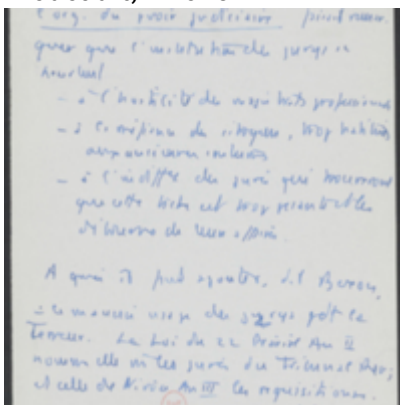 L'org. du pouvoir judiciaire
quer que l'institution des jurys se
heurtent
- à l'hostilité des magistrats professionnels
- à la méfiance des citoyens, trop habitués
aux anciennes coutumes
- à l'indiffce des jurés qui trouveront
que cette tâche est trop
de leurs affaires.
A quoi il faut ajouter, dit
- le mauvais usage des jurys pdt la
Terreur. La Loi du 22 Prairial An II
nomme elle m les jurés du Tribunal Rev;
et celle de Nivôse An III les requisitionne.